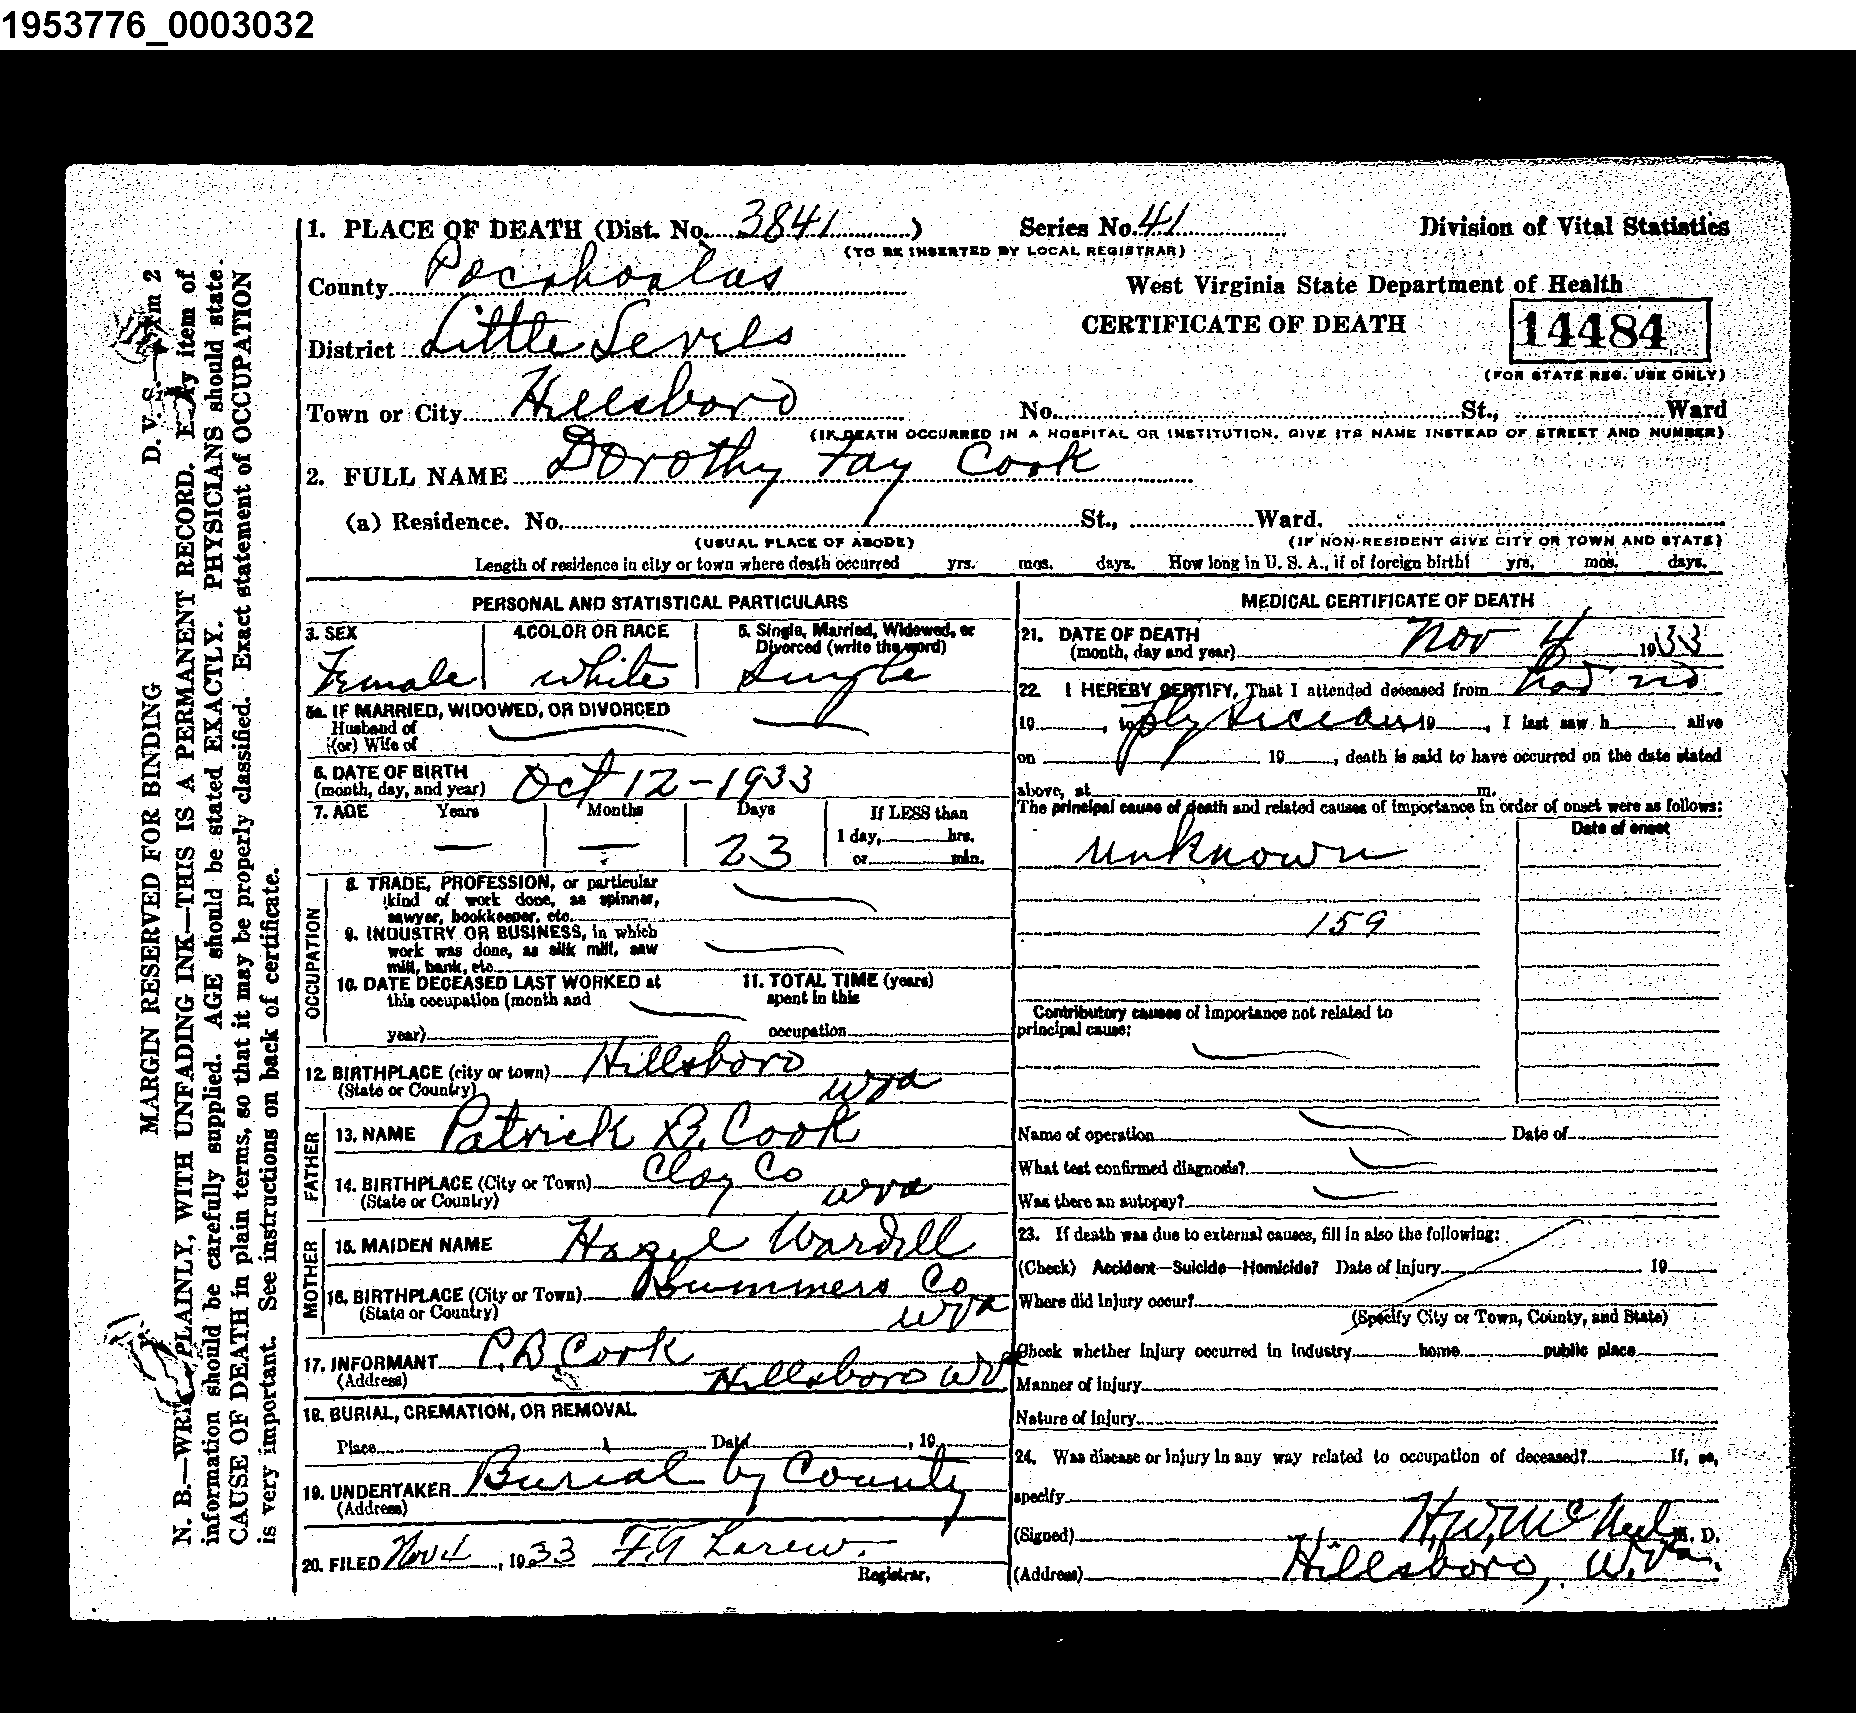 1953776_0003032
1. PLACE OF DEATH (Dist. No. 3841 ) Series No. 41 Division of Vital Statistics
(TO BE INSERTED BY LOCAL REGISTRAR)
County Pocahontas
West Virginia State Department of Health
CERTIFICATE OF DEATH 14484
District Little Levels
(FOR STATE REG. USE ONLY)
Town or City Hillsboro No. St., Ward
(IF DEATH OCCURRED IN A HOSPITAL OR INSTITUTION, GIVE ITS NAME INSTEAD OF STREET AND NUMBER)
2. FULL NAME Dorothy Fay Cook
(a) Residence. No. St., Ward.
(USUAL PLACE OF ABODE) (IF NON-RESIDENT GIVE CITY OR TOWN AND STATE)
Length of residence in city or town where death occurred yrs. mos. days. How long in U. S. A., if of foreign birth? yrs. mos. days.
PERSONAL AND STATISTICAL PARTICULARS
3. SEX 4. COLOR OR RACE 5. Single, Married, Widowed, or
Divorced (write the word)
Female white Single
5a. IF MARRIED, WIDOWED, OR DIVORCED
Husband of
(or) Wife of
6. DATE OF BIRTH
(month, day, and year) Oct 12-1933
7. AGE Years Months Days If LESS than
1 day, hrs.
— — 23 or min.
OCCUPATION
8. TRADE, PROFESSION, or particular
kind of work done, as spinner,
sawyer, bookkeeper, etc.
9. INDUSTRY OR BUSINESS, in which
work was done, as silk mill, saw
mill, bank, etc.
10. DATE DECEASED LAST WORKED at 11. TOTAL TIME (years)
this occupation (month and spent in this
year) occupation
12. BIRTHPLACE (city or town) Hillsboro
(State or Country) WVa
FATHER
13. NAME Patrick B. Cook
14. BIRTHPLACE (City or Town) Clay Co
(State or Country) WVa
MOTHER
15. MAIDEN NAME Hazel Wardell
16. BIRTHPLACE (City or Town) Summers Co
(State or Country) WVa
17. INFORMANT P.B. Cook
(Address) Hillsboro WV
18. BURIAL, CREMATION, OR REMOVAL
Place Date , 19
19. UNDERTAKER Burial by County
(Address)
20. FILED Nov 4 , 1933 F.T Larew.
Registrar.
MEDICAL CERTIFICATE OF DEATH
21. DATE OF DEATH
(month, day and year) Nov 4 1933
22. I HEREBY CERTIFY, That I attended deceased from had no
19 , to physician 19 , I last saw h alive
on 19 , death is said to have occurred on the date stated
above, at m.
The principal cause of death and related causes of importance in order of onset were as follows:
Date of onset
unknown
159
Contributory causes of importance not related to
principal cause:
Name of operation Date of
What test confirmed diagnosis?
Was there an autopsy?
23. If death was due to external causes, fill in also the following:
(Check) Accident—Suicide—Homicide? Date of Injury 19
Where did injury occur?
(Specify City or Town, County, and State)
Check whether injury occurred in industry home public place
Manner of injury
Nature of injury
24. Was disease or injury in any way related to occupation of deceased? If, so,
specify
(Signed) H.W. McNeel M. D.
(Address) Hillsboro, W.Va.
D. V. S.
MARGIN RESERVED FOR BINDING
N. B.—WRITE PLAINLY, WITH UNFADING INK—THIS IS A PERMANENT RECORD. Every item of
information should be carefully supplied. AGE should be stated EXACTLY. PHYSICIANS should state
CAUSE OF DEATH in plain terms, so that it may be properly classified. Exact statement of OCCUPATION
is very important. See instructions on back of certificate.